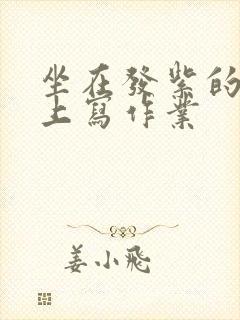 坐在發紫的
上寫作業
姜小飛